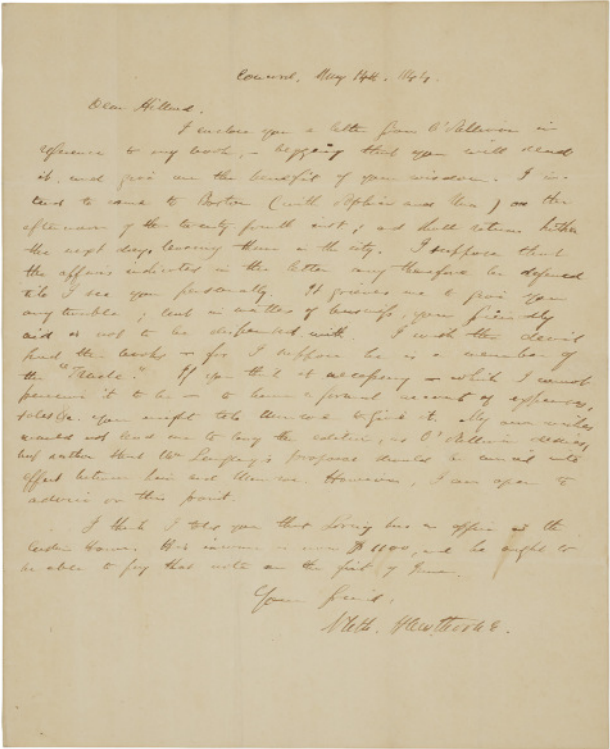 Concord, May 14th. 1844.
Dear Hillard.
I enclose you a letter from O'Sullivan in
reference to my book, - begging that you will read
it, and give me the benefit of your wisdom. I in-
tend to come to Boston (with Sophia and Una) on the
afternoon of the twenty fourth inst; and shall return hither
the next day, leaving them in the city. I suppose that
the affairs indicated in the letter may therefore be deferred
till I see you personally. It grieves me to give you
any trouble; but in matters of business, your friendly
aid is not to be dispensed with. I wish the devil
had the books - for I suppose he is a member of
the "Trade." If you think it necessary - which I cannot
perceive it to be - to have a formal account of expenses,
sales &c. you might tell Munroe to give it. My own wishes
would not lead me to buy the edition, as O'Sullivan desires,
but rather that Mr Langley's proposal should be carried into
effect between him and Munroe. However, I am open to
advice on this point.
I think I told you that Loring has an office in the
Custom House. His income is now $1100, and he ought to
be able to pay that note on the first of June.
Your friend,
Nath. Hawthorne.